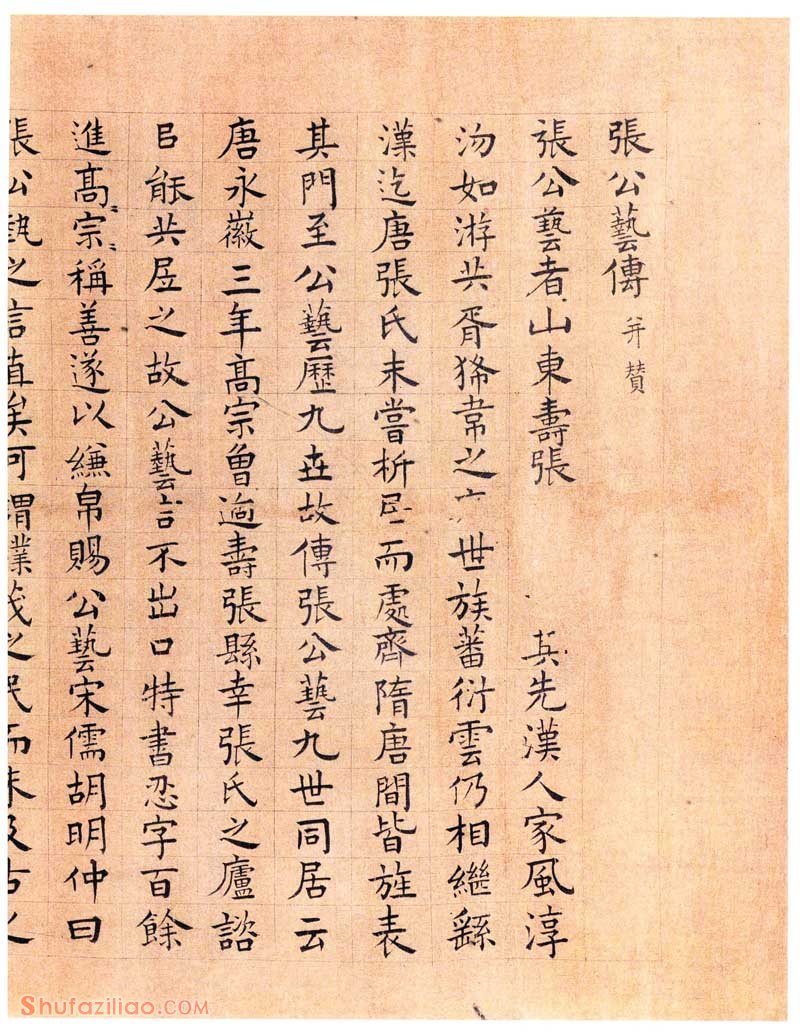 張公藝傳 并贊
張公藝者山東壽張 其先漢人家風淳
沕如游共胥狶韋之 世族蕃衍雲仍相繼繇
漢迄唐張氏未嘗析居而處齊隋唐間皆旌表
其門至公藝歷九世故傳張公藝九世同居云
唐永徽三年高宗 壽張縣幸張氏之廬諮
㠯能共居之故公藝言不出口特書忍字百餘
進高〻宗〻稱善遂以縑帛賜公藝宋儒胡明仲曰
張公 之言直矣可謂 之民而未及古
Shufaziliao.COM